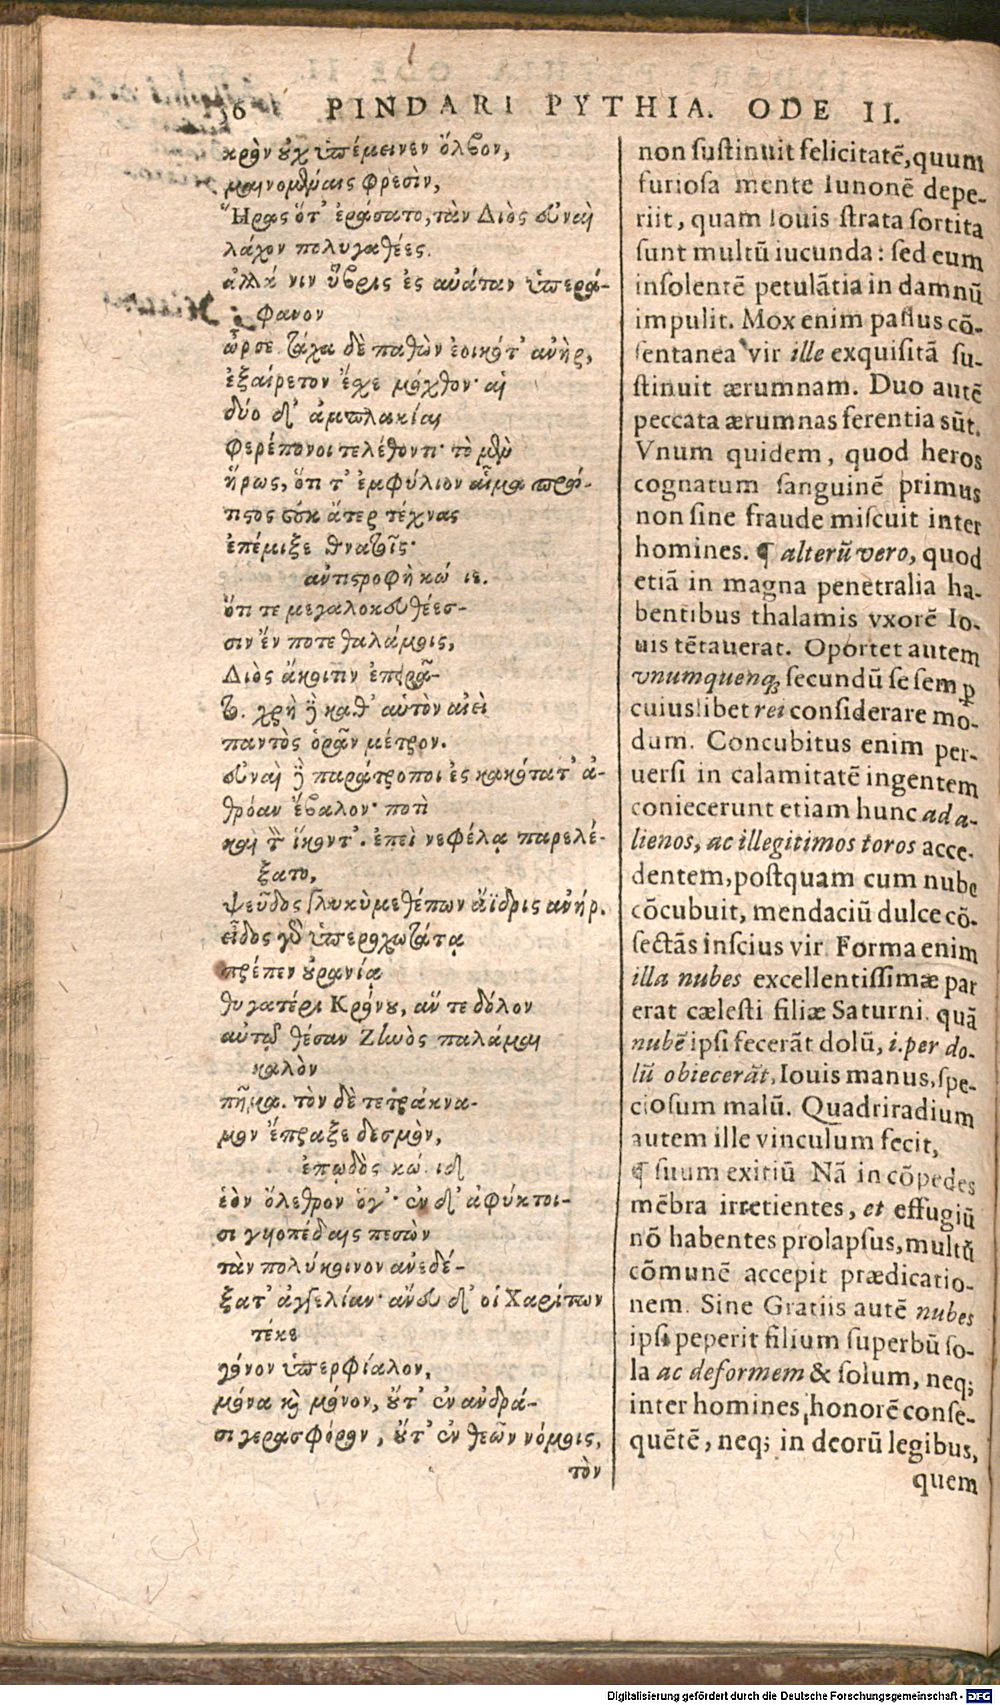 36 PINDARI PYTHIA. ODE II.
κρὸν οὐχ ὑπέμεινεν ὄλβον,
μαινομέναις φρεσὶν,
Ἥρας ὅτ' ἐράσατο, τὰν Διὸς εὐναὶ
λάχον πολυγαθέες.
ἀλλά νιν ὕβρις ἐς αὐάταν ὑπερά-
φανον
ὦρσε. τάχα δὲ παθὼν ἐοικότ' ἀνὴρ,
ἐξαίρετον ἔχε μόχθον· αἱ
δύο δ' ἀμπλακίαι
φερέπονοι τελέθοντι· τὸ μὲν
ἥρως, ὅτι τ' ἐμφύλιον αἷμα πρώ-
τιςος οὐκ ἄτερ τέχνας
ἐπέμιξε θνατοῖς·
ἀντιςροφὴ κώ. ιε.
ὅτι τε μεγαλοκευθέες-
σιν ἔν ποτε θαλάμοις,
Διὸς ἄκοιτιν ἐπειρᾶ-
το. χρὴ δὲ καθ' αὑτὸν αἰεὶ
παντὸς ὁρᾷν μέτρον.
εὐναὶ δὲ παράτροποι ἐς κακότατ' ἀ-
θρόαν ἔβαλον· ποτὶ
καὶ τὸν ἵκοντ'. ἐπεὶ νεφέλᾳ παρελέ-
ξατο,
ψεῦδος γλυκὺ μεθέπων ἄϊδρις ἀνήρ.
εἶδος γὰρ ὑπεροχωτάτᾳ
πρέπεν οὐρανίᾳ
θυγατέρι Κρόνου, ἅν τε δόλον
αὐτῷ θέσαν Ζηνὸς παλάμαι
καλὸν
πῆμα. τὸν δὲ τετράκνα-
μον ἔπραξε δεσμὸν,
ἐπῳδὸς κώ. ιδ
ἑὸν ὄλεθρον ὅγ'· ἐν δ' ἀφύκτοι-
σι γυιοπέδαις πεσὼν
τὰν πολύκοινον ἀνεδέ-
ξατ' ἀγγελίαν· ἄνευ δ' οἱ Χαρίτων
τέκε
γόνον ὑπερφίαλον,
μόνα καὶ μόνον, οὔτ' ἐν ἀνδρά-
σι γερασφόρον, οὔτ' ἐν θεῶν νόμοις,
τὸν
non sustinuit felicitatē, quum
furiosa mente Iunonē depe-
riit, quam Iouis strata sortita
sunt multū iucunda: sed eum
insolentē petulātia in damnū
impulit. Mox enim passus cō-
sentanea vir ille exquisitā su-
stinuit ærumnam. Duo autē
peccata ærumnas ferentia sūt.
Vnum quidem, quod heros
cognatum sanguinē primus
non sine fraude miscuit inter
homines. ¶ alterū vero, quod
etiā in magna penetralia ha-
bentibus thalamis vxorē Io-
uis tētauerat. Oportet autem
vnumquenq; secundū se semp
cuiuslibet rei considerare mo-
dum. Concubitus enim per-
uersi in calamitatē ingentem
coniecerunt etiam hunc ad a-
lienos, ac illegitimos toros acce-
dentem, postquam cum nube
cōcubuit, mendaciū dulce cō-
sectās inscius vir. Forma enim
illa nubes excellentissimæ par
erat cælesti filiæ Saturni. quā
nubē ipsi fecerāt dolū, i. per do-
lū obiecerāt, Iouis manus, spe-
ciosum malū. Quadriradium
autem ille vinculum fecit,
¶ suum exitiū Nā in cōpedes
mēbra irretientes, et effugiū
nō habentes prolapsus, multū
cōmunē accepit prædicatio-
nem. Sine Gratiis autē nubes
ipsi peperit filium superbū so-
la ac deformem & solum, neq;
inter homines honorē conse-
quētē, neq; in deorū legibus,
quem
Digitalisierung gefördert durch die Deutsche Forschungsgemeinschaft - DFG